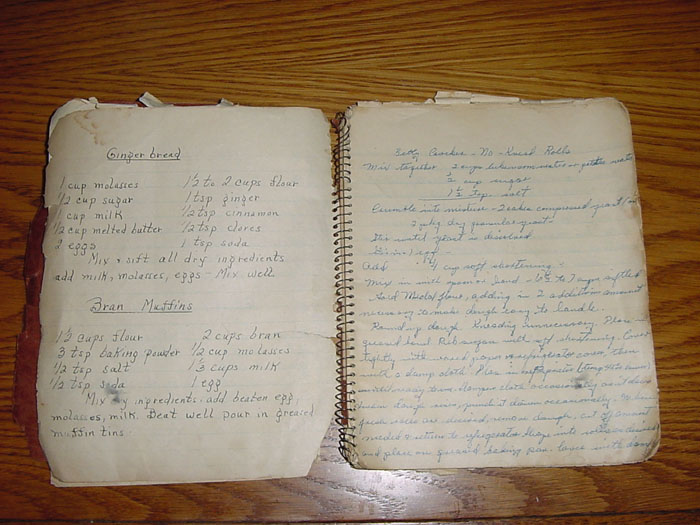 Gingerbread
1 cup molasses 1½ to 2 cups flour
½ cup sugar 1 tsp ginger
1 cup milk ½ tsp cinnamon
½ cup melted butter ½ tsp cloves
2 eggs 1 tsp soda
Mix & sift all dry ingredients
add milk, molasses, eggs - Mix well
Bran Muffins
1½ cups flour 2 cups bran
3 tsp baking powder ½ cup molasses
½ tsp salt 1⅓ cups milk
½ tsp soda 1 egg
Mix dry ingredients. add beaten egg,
molasses, milk. Beat well pour in greased
muffin tins.
Betty Crocker - No - Knead Rolls
Mix together 2 cups lukewarm water or potato water
½ cup sugar
1½ tsp. salt
Crumble into mixture - 2 cakes compressed yeast
2 pkg dry granular yeast
Stir until yeast is dissolved
Stir in 1 egg -
Add ¼ cup soft shortening -
Mix in with spoon or hand - 6½ to 7 cups sifted
Gold Medal flour, adding in 2 additions amount
necessary to make dough easy to handle.
Round up dough. Kneading unnecessary. Place
greased bowl. Rub
tightly with waxed paper or refrigerator cover, then
with a damp cloth. Place in refrigerator
dough rises, punch it down occasionally.
fresh rolls are desired, remove dough. cut off amount
needed & return to refrigerator. Shape into rolls as desired
and place on greased baking pan. Cover with damp